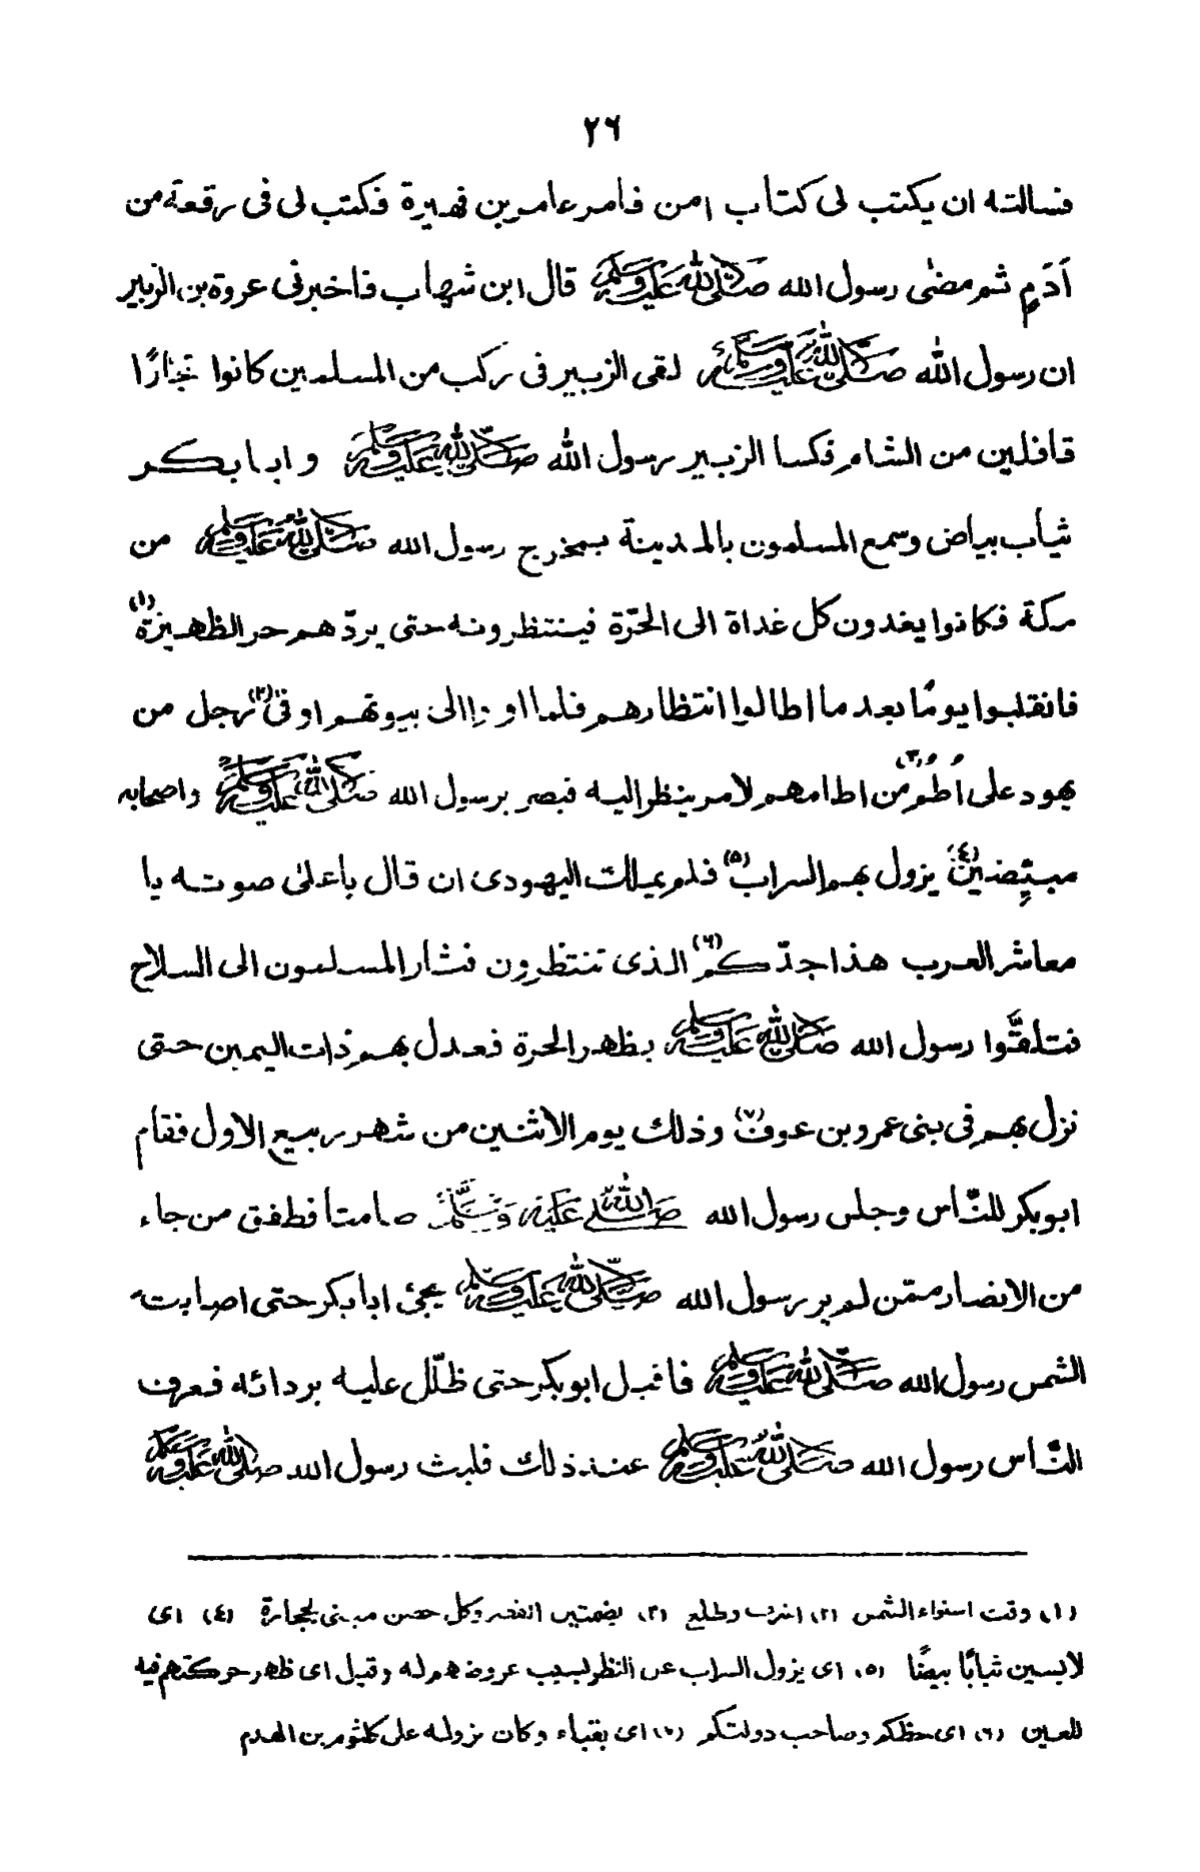 ٢٦
فسالته ان يكتب لى كتاب امن فامر عامر بن فهيرة فكتب لى فى رقعة من
اَدَمٍ ثم مضٰى رسول الله صلى الله عليه وسلم قال ابن شهاب فاخبرنى عروة بن الزبير
ان رسول الله صلى الله عليه وسلم لقى الزبير فى ركب من المسلمين كانوا تجارًا
قافلين من الشام فكسا الزبير رسول الله صلى الله عليه وسلم وابا بكر
ثياب بياض وسمع المسلمون بالمدينة بمخرج رسول الله صلى الله عليه وسلم من
مكة فكانوا يغدون كل غداة الى الحَرّة فينتظرونه حتى يردّهم حر الظهيرة(١)
فانقلبوا يومًا بعد ما اطالوا انتظارهم فلما اووا الى بيوتهم اوفى(٢) رجل من
يهود على اُطُم(٣) من اطامهم لامر ينظر اليه فبصر برسول الله صلى الله عليه وسلم واصحابه
مبيّضين(٤) يزول بهم السراب(٥) فلم يملك اليهودى ان قال باعلىٰ صوته يا
معاشر العرب هذا جدّكم(٦) الذى تنتظرون فثار المسلمون الى السلاح
فتلقَّوا رسول الله صلى الله عليه وسلم بظهر الحرة فعدل بهم ذات اليمين حتى
نزل بهم فى بنى عمرو بن عوف(٧) وذلك يوم الاثنين من شهر ربيع الاول فقام
ابو بكر للنّاس وجلس رسول الله صلى الله عليه وسلم صامتا فطفق من جاء
من الانصار ممّن لم ير رسول الله صلى الله عليه وسلم يجئ ابا بكر حتى اصابت
الشمس رسول الله صلى الله عليه وسلم فاقبل ابو بكر حتى ظلّل عليه بردائه فعرف
النّاس رسول الله صلى الله عليه وسلم عند ذلك فلبث رسول الله صلى الله عليه وسلم
(١) وقت استواء الشمس (٢) اشرف وطلع (٣) بضمتين القصر وكل حصن مبنى بحجارة (٤) اى
لابسين ثيابًا بيضًا (٥) اى يزول السراب عن النظر بسبب عروضهم له وقيل اى ظهر حركتهم فيه
للعين (٦) اى حظكم وصاحب دولتكم (٧) اى بقباء وكان نزوله على كلثوم بن الهدم